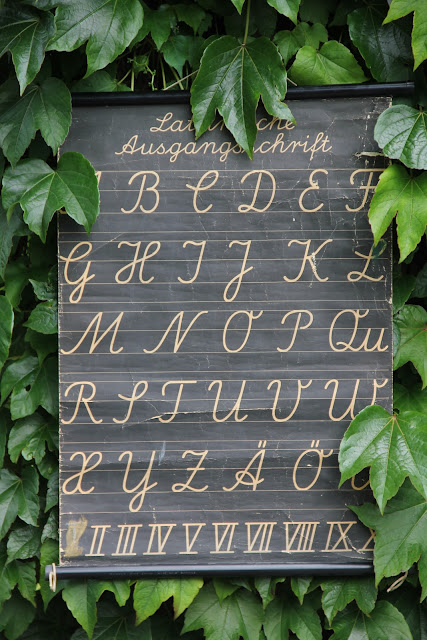 Lateinische
Ausgangsschrift
B C D E F
G H I J K L
M N O P Qu
R S T U V W
X Y Z Ä Ö
II III IV V VI VII VIII IX